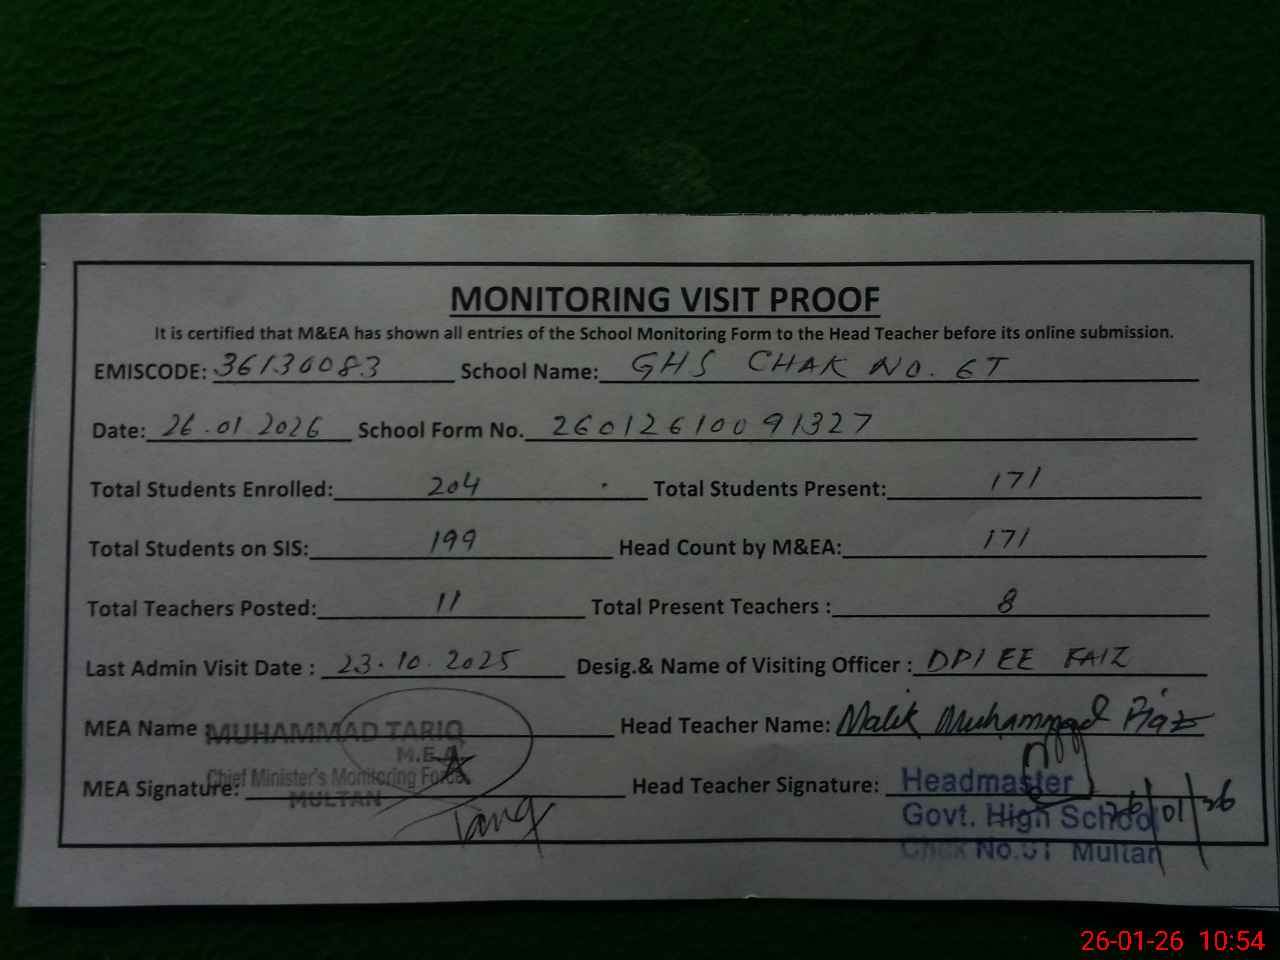 MONITORING VISIT PROOF
It is certified that M&EA has shown all entries of the School Monitoring Form to the Head Teacher before its online submission.
EMISCODE: 36130083 School Name: GHS CHAK NO. 6T
Date: 26.01 2026 School Form No. 26012610091327
Total Students Enrolled: 204 Total Students Present: 171
Total Students on SIS: 199 Head Count by M&EA: 171
Total Teachers Posted: 11 Total Present Teachers : 8
Last Admin Visit Date : 23.10.2025 Desig.& Name of Visiting Officer : DPI EE FAIZ
MEA Name : MUHAMMAD TARIQ Head Teacher Name: Malik Muhammad
M.E.A
MEA Signature: Chief Minister's Monitoring Force Head Teacher Signature: Headmaster
MULTAN
Tariq
Govt. High School 26/01/26
Chck No. Multan
26-01-26 10:54